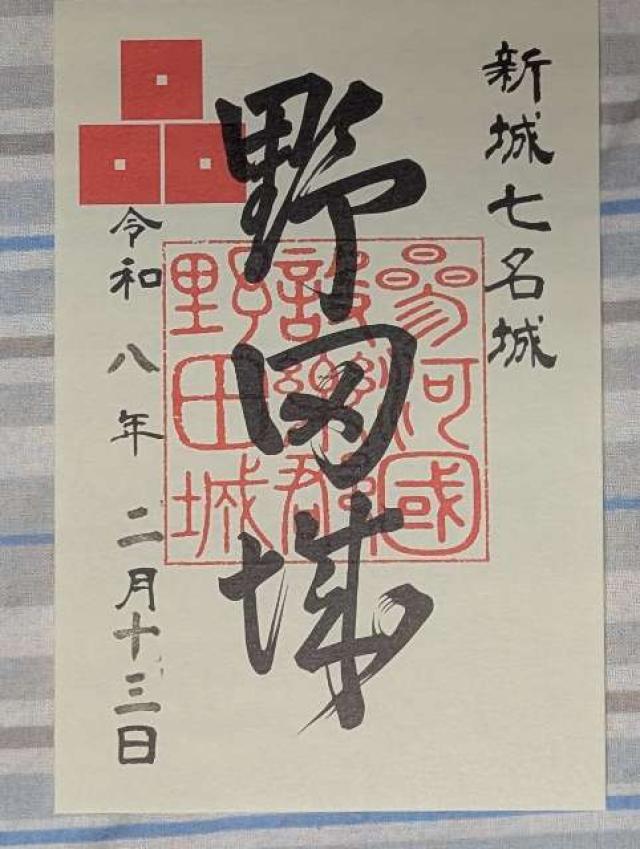 新城七名城
野田城
参河國
設樂郡
野田城
令和八年二月十三日